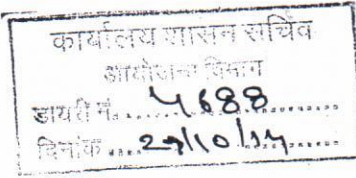 कार्यालय शासन सचिव
आयोजना विभाग
डायरी नं. 4688
दिनांक 29/10/14